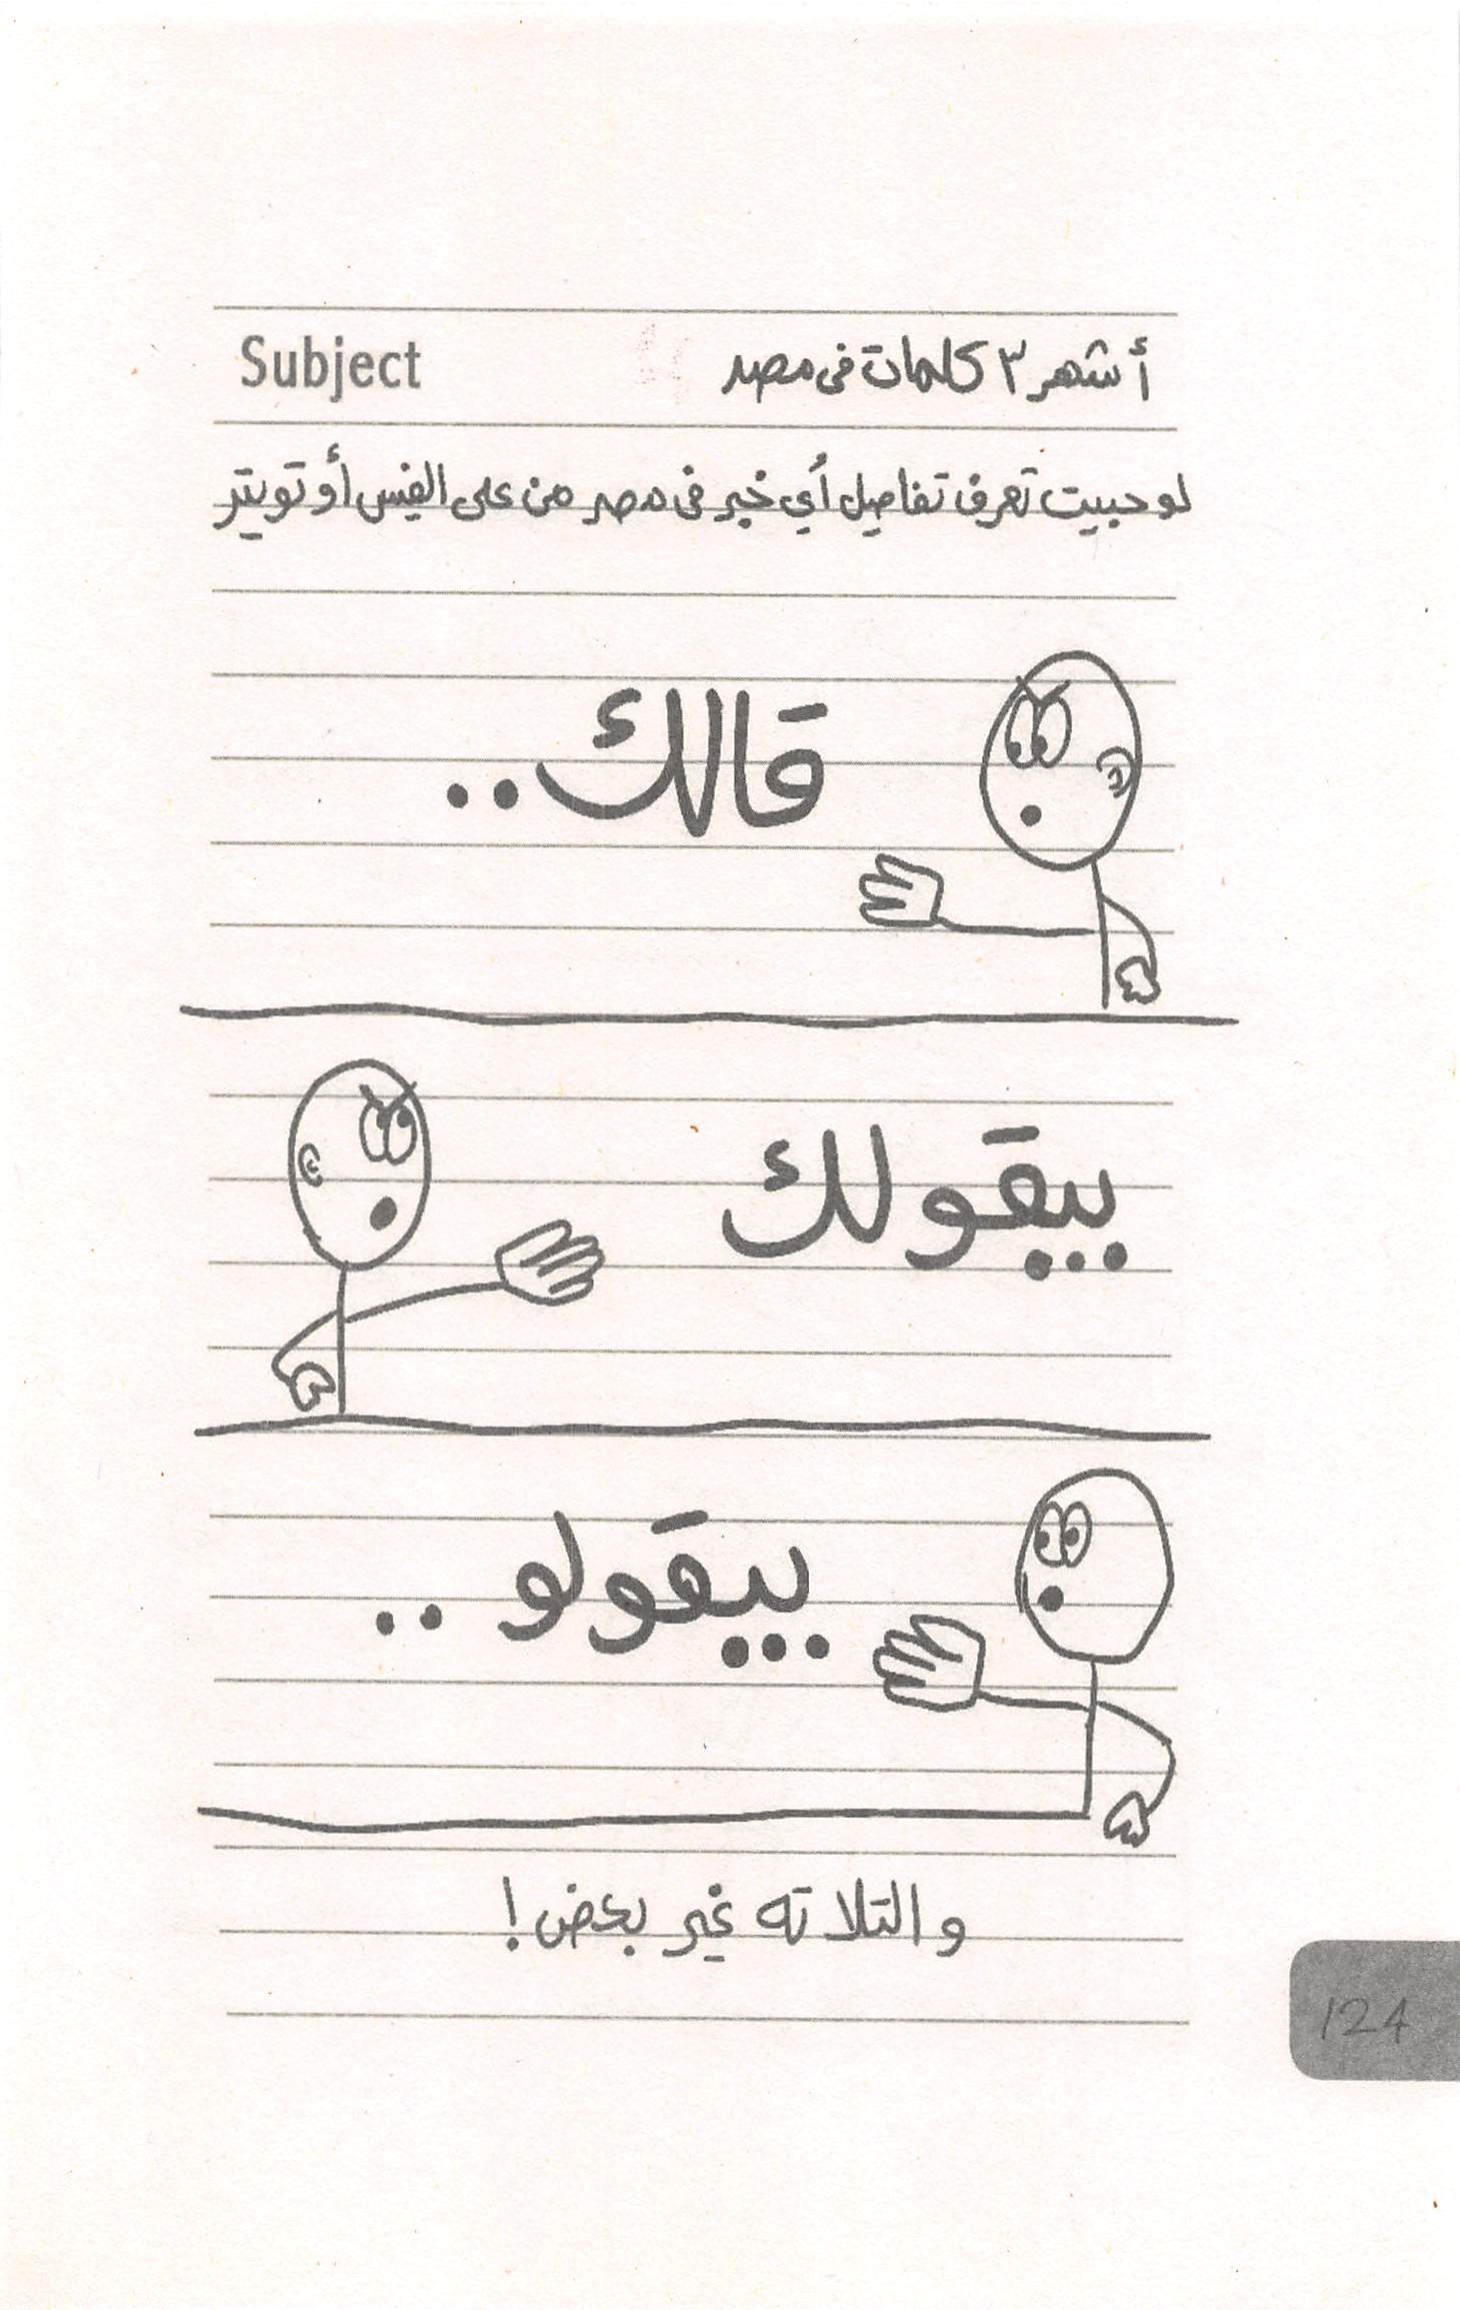 أشهر ٣ كلمات فى مصر Subject
لو حبيت تعرف تفاصيل أي خبر فى مصر من على الفيس أو تويتر
قالك..
بيقولك
بيقولو ..
و التلاته غير بعض!
124